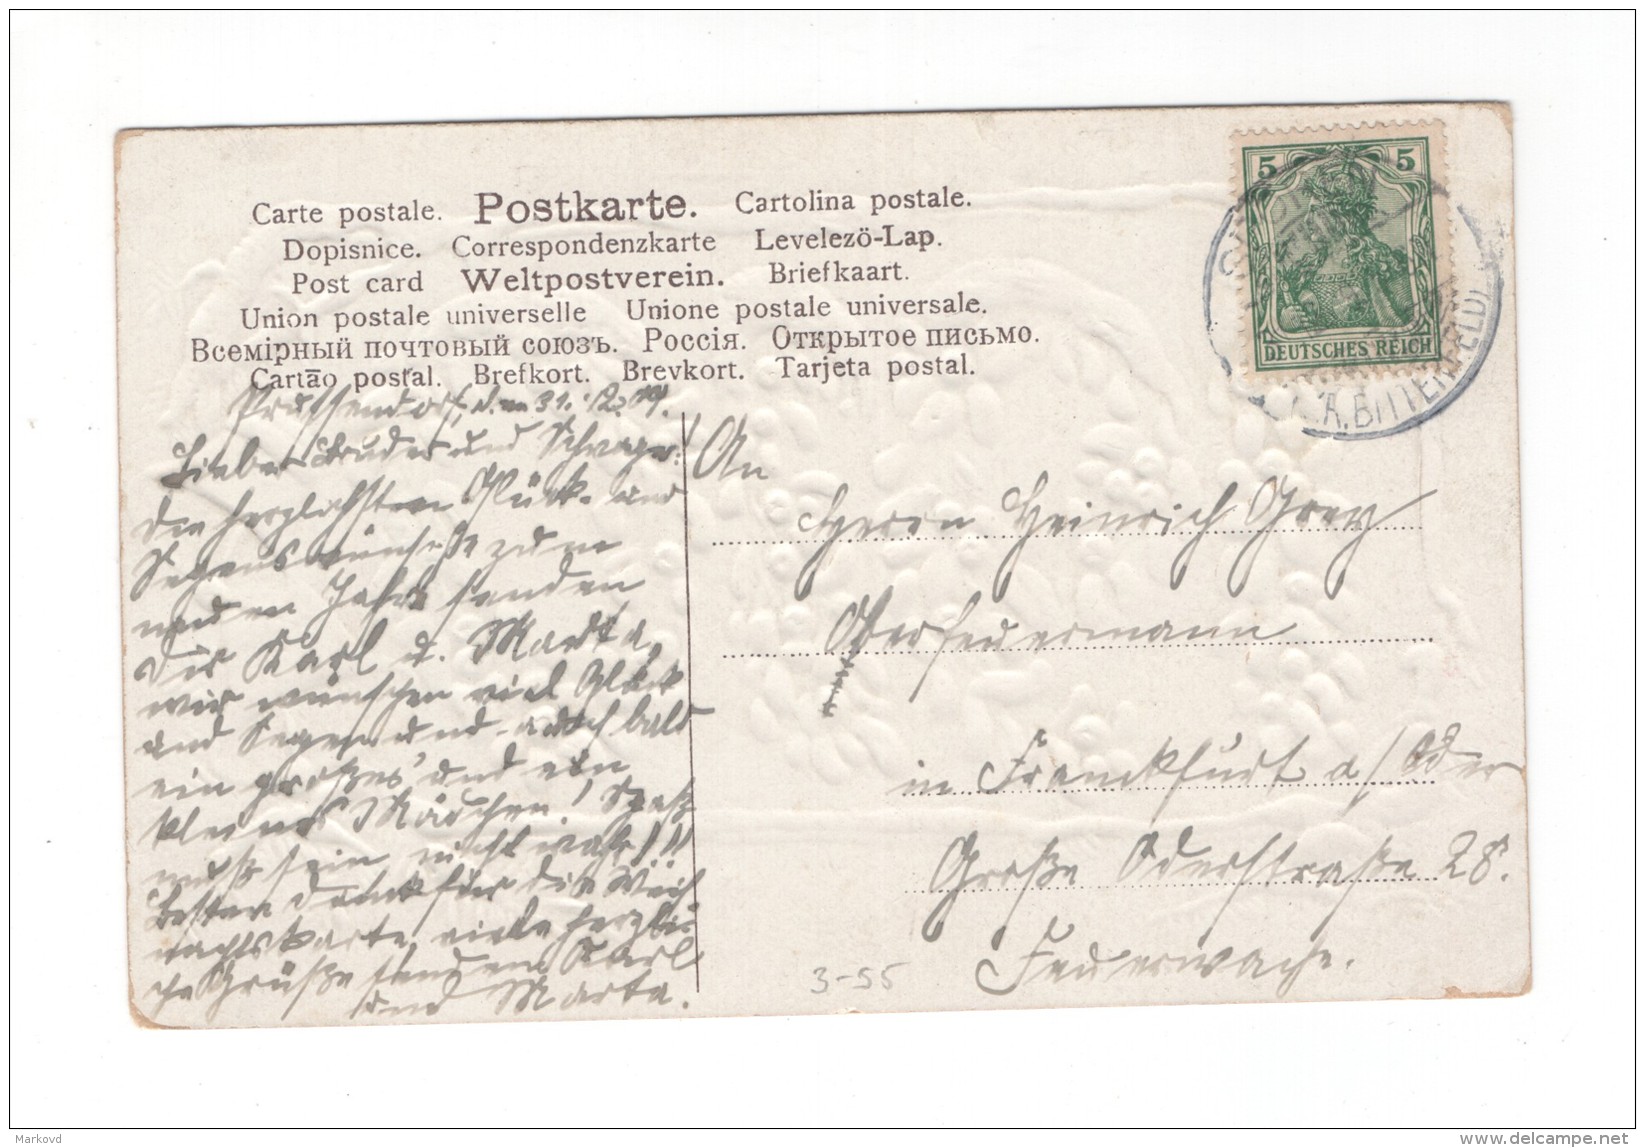 Carte postale. Postkarte. Cartolina postale.
Dopisnice. Correspondenzkarte Levelezö-Lap.
Post card Weltpostverein. Briefkaart.
Union postale universelle Unione postale universale.
Всемірный почтовый союзъ. Россія. Открытое письмо.
Cartão postal. Brefkort. Brevkort. Tarjeta postal.
d. 31. 12. 09.
Lieber Bruder und Schwager!
die herzlichsten Glück- und
Segenswünsche zum
neuen Jahre senden
dir Karl u. Marta,
wir wünschen viel Glück
und Segen und auch bald
ein großes und ein
kleines Mädchen! Spaß
muß sein nicht wahr!!!
Besten dank für die Weih
nachtskarte, viele herzli-
che Grüße senden Karl
und Marta.
An
Herrn Heinrich Grey
Oberfeuermann
in Franckfurt a/Oder
Große Oderstraße 28.
Feuerwache.
3-55
5 5
DEUTSCHES REICH
BITTERFELD)
Markovd
delcampe.net